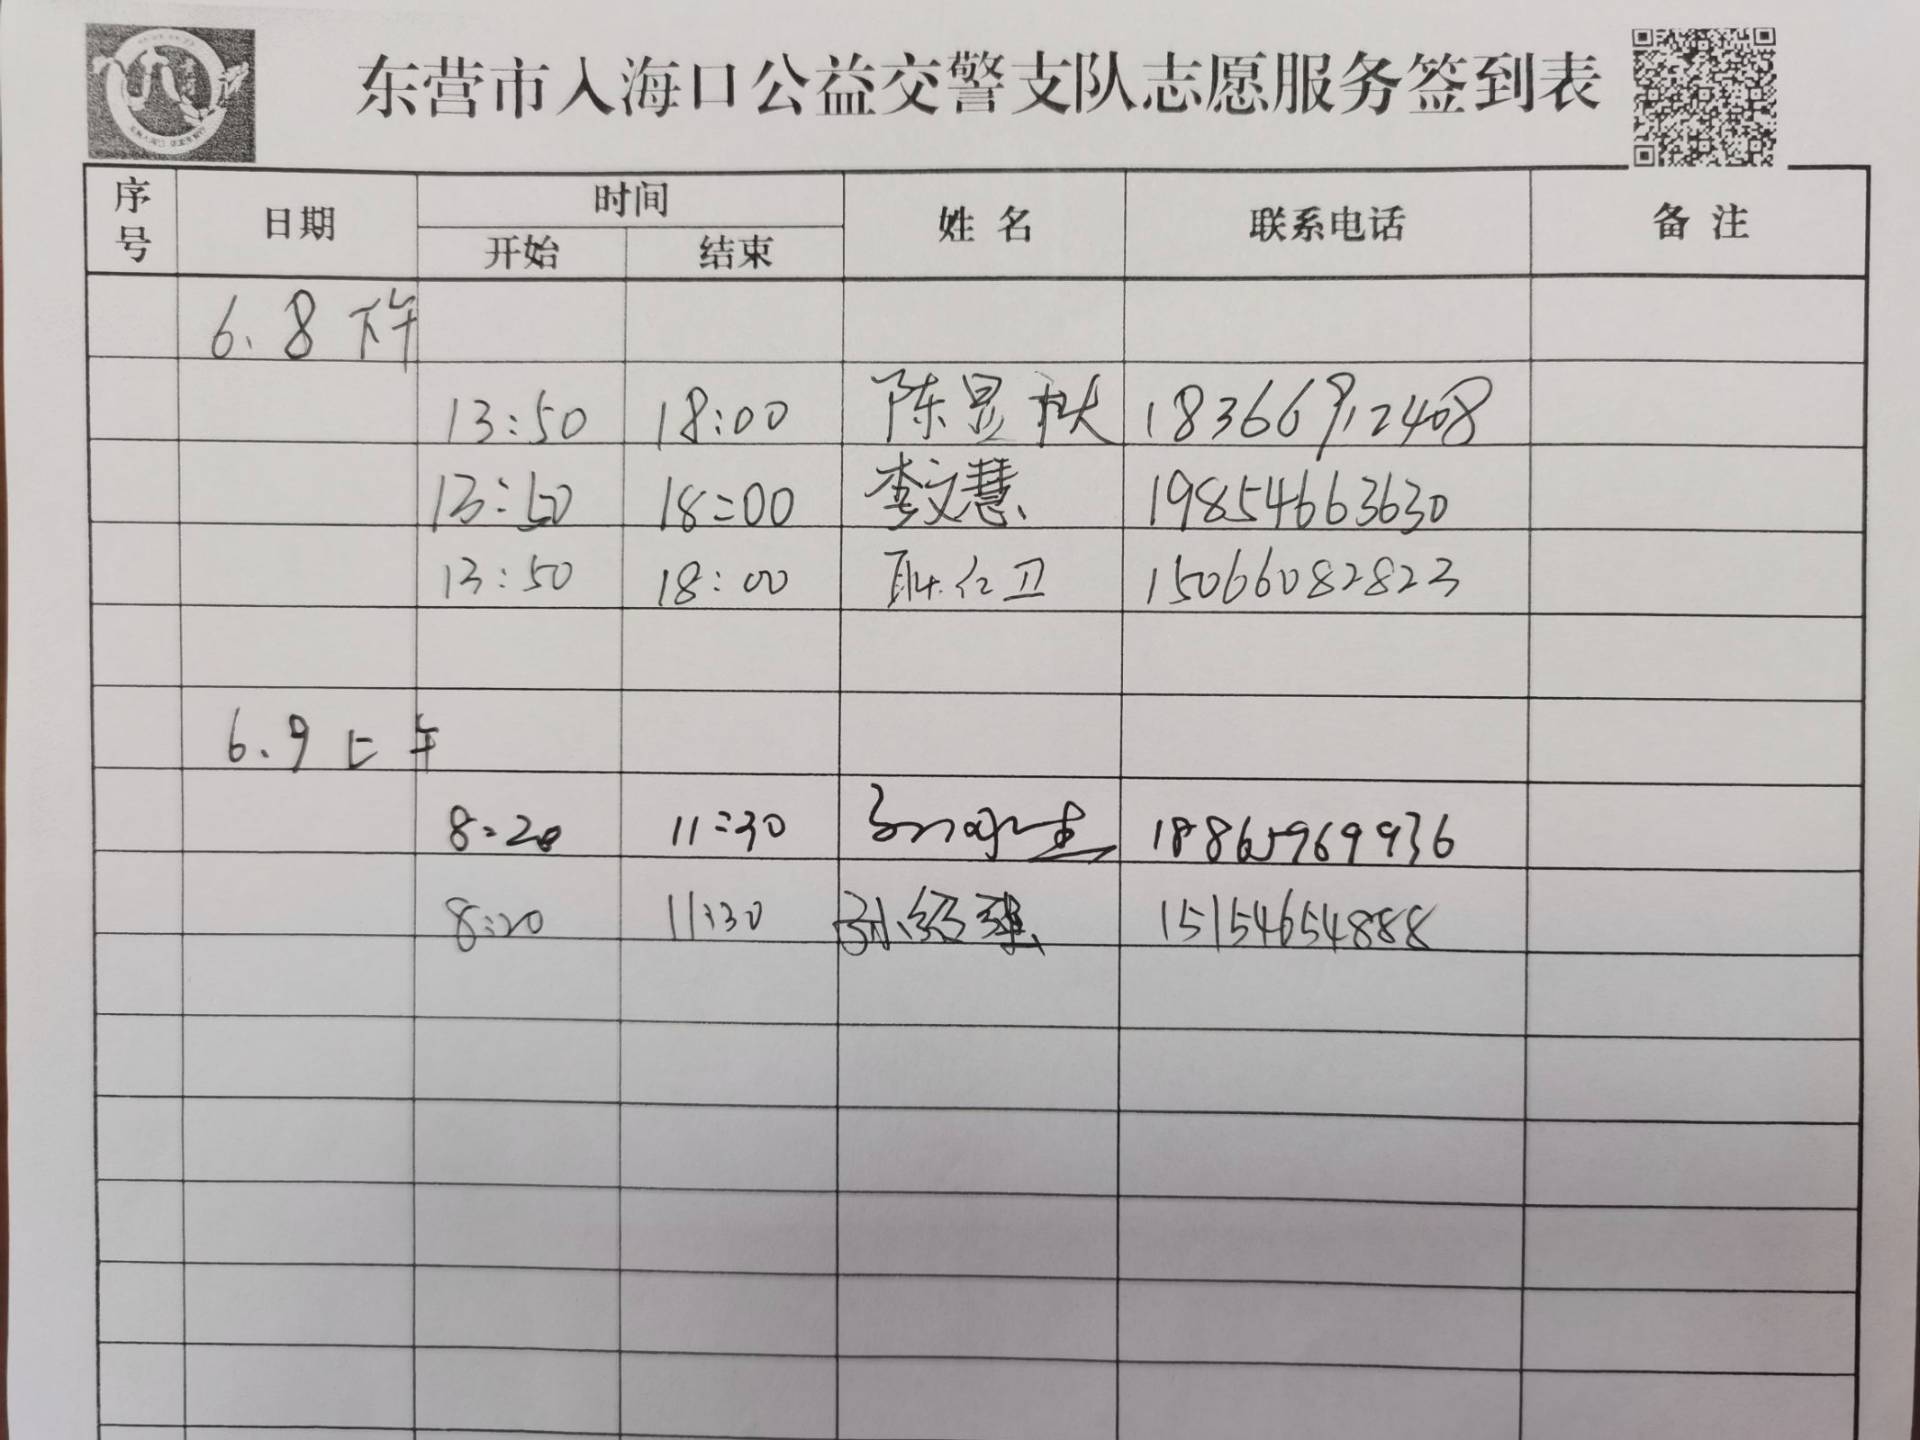 东营市入海口公益交警支队志愿服务签到表
序号 日期 时间 姓名 联系电话 备注
开始 结束
6.8 下午
13:50 18:00 陈显秋 18366912408
13:50 18:00 李文慧 19854663630
13:50 18:00 耿仁卫 15066082823
6.9 上午
8:20 11:30 18865969936
8:20 11:30 孙绍 15154654888